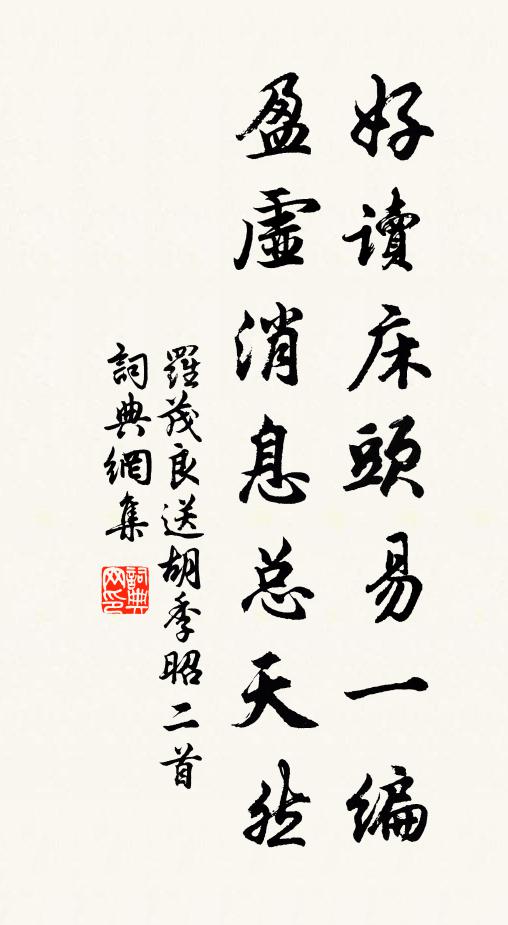 好讀床頭易一編
盈虛消息总天然
羅茂良送胡季昭二首
詞典網集
詞典網印